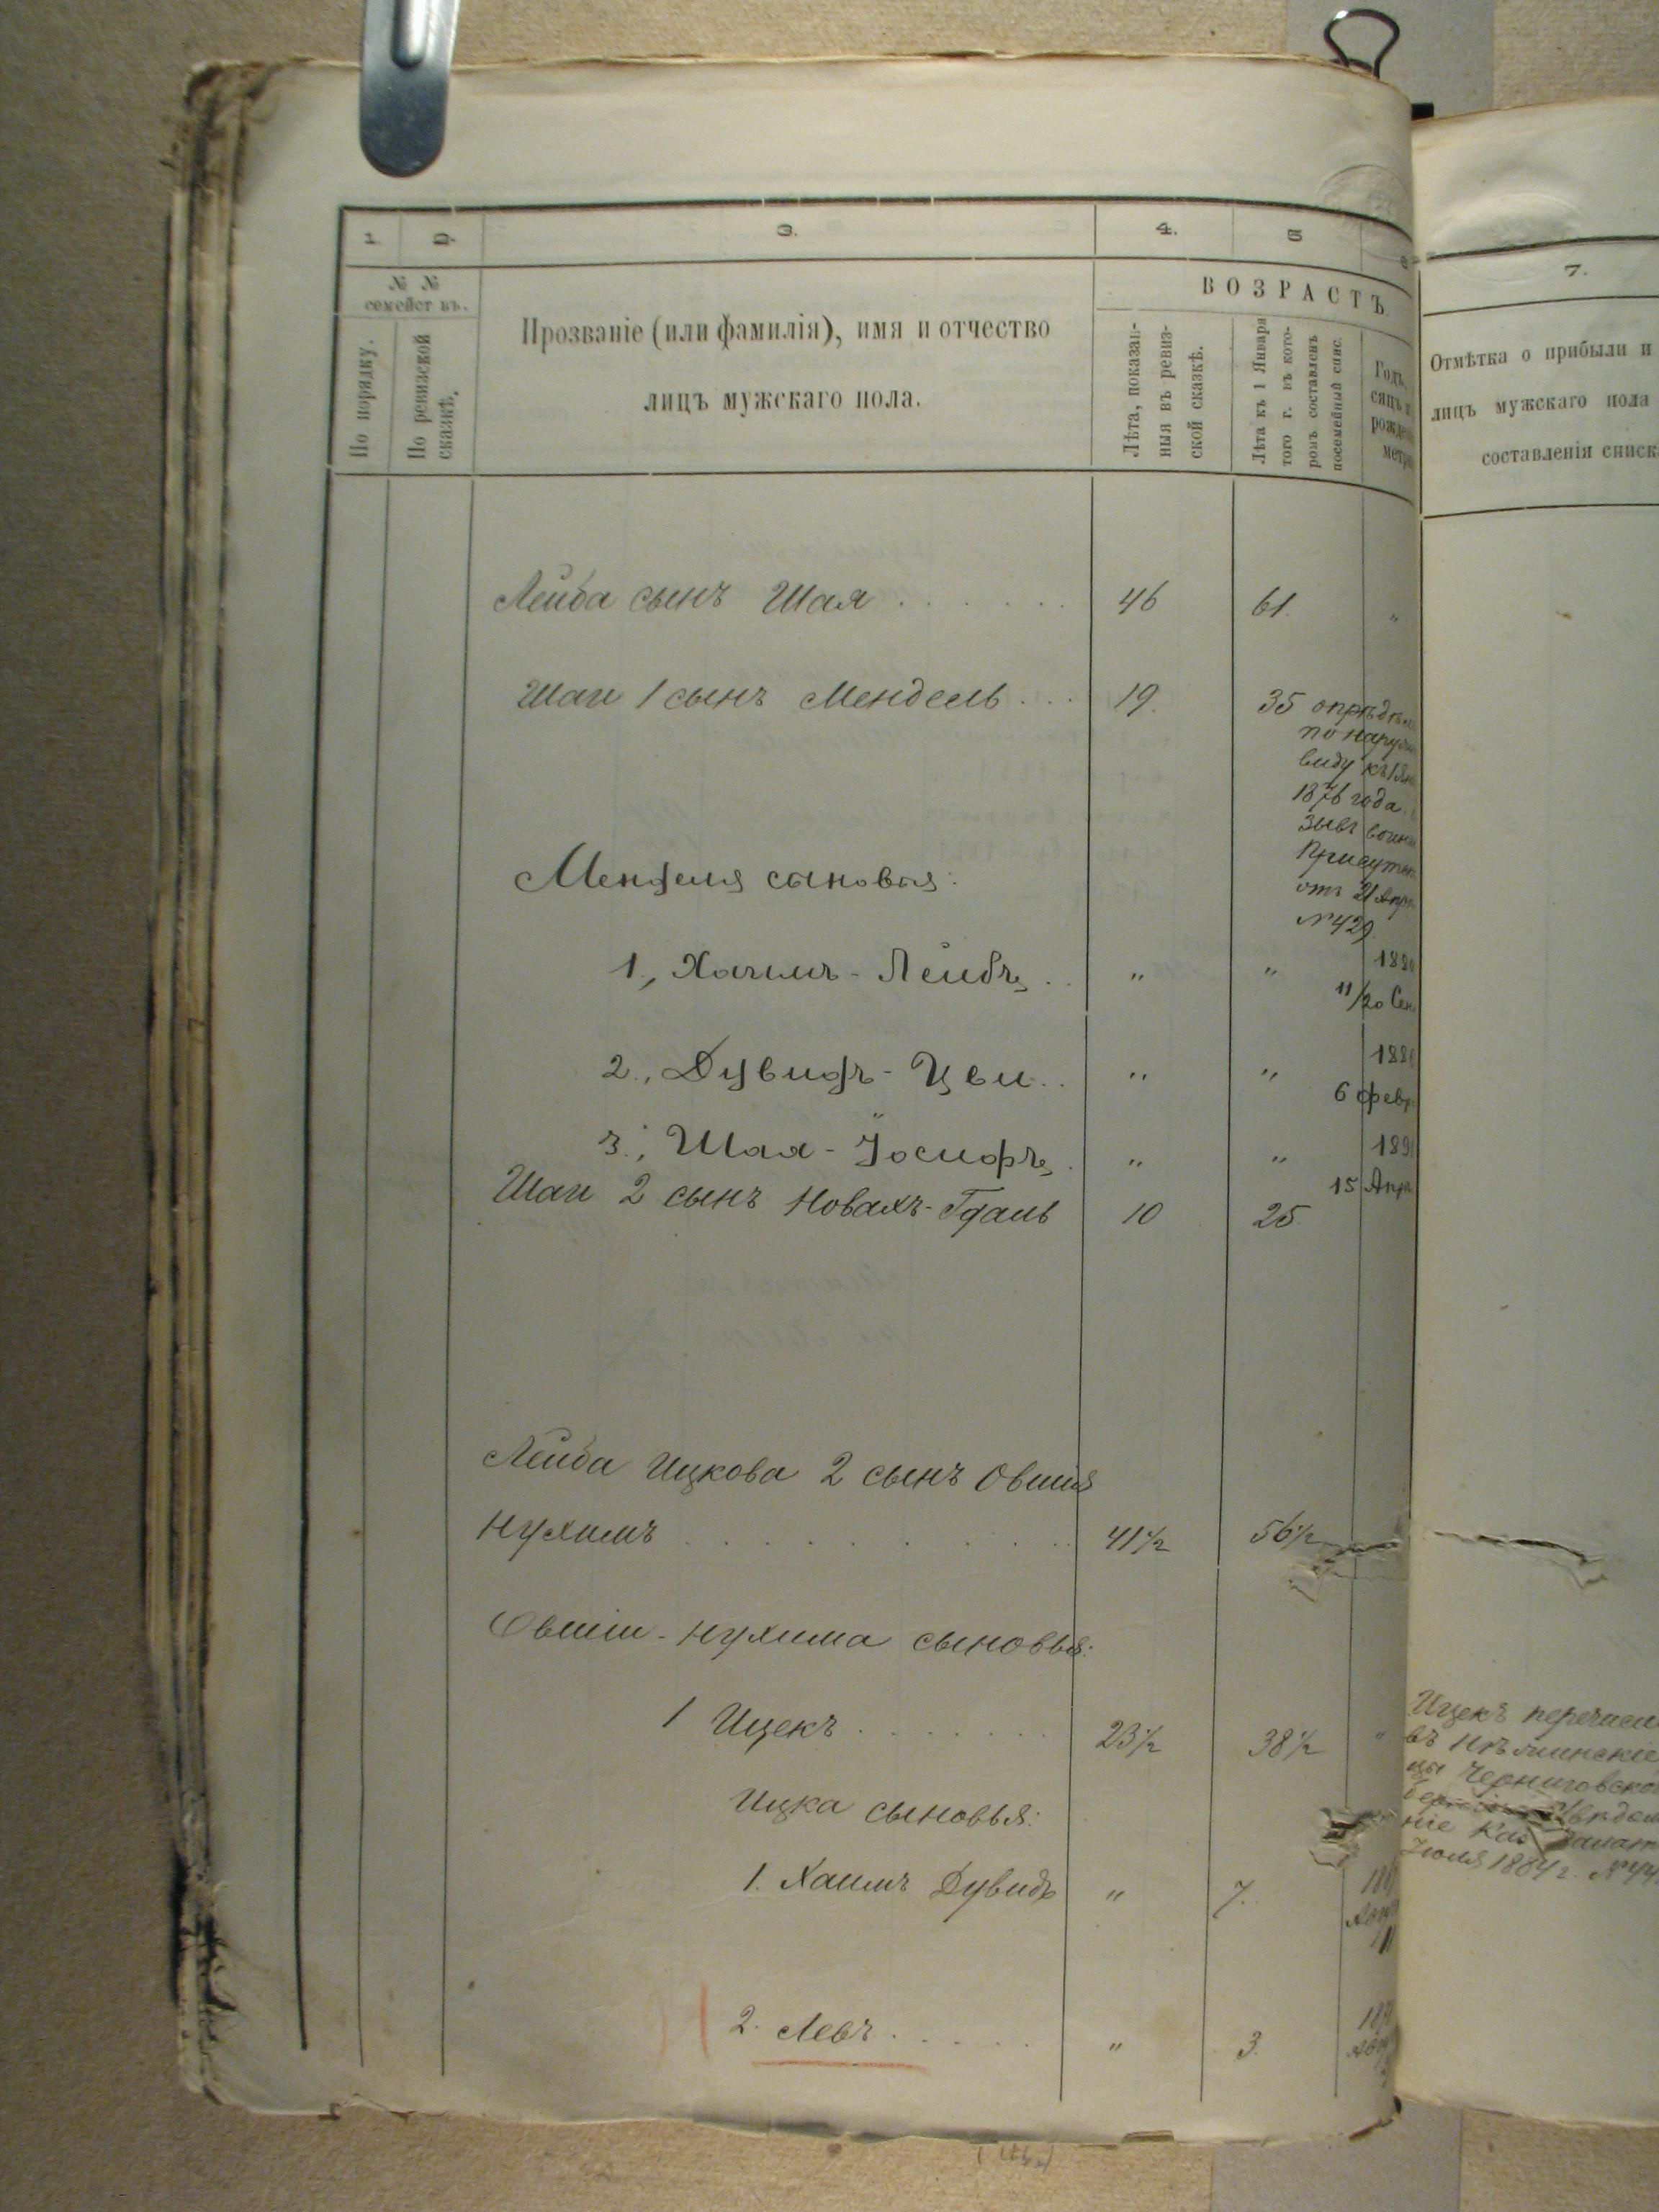 1. 2. 3. 4. 5 6
№ №
семействъ.
По порядку.
По ревизской
сказкѣ.
Прозваніе (или фамилія), имя и отчество
лицъ мужскаго пола.
ВОЗРАСТЪ.
Лѣта, показан-
ныя въ ревиз-
ской сказкѣ.
Лѣта къ 1 Января
того г. въ кото-
ромъ составленъ
посемейный спис.
Годъ,
сяцъ и
рожден
метри
Лейба сынъ Шая . . . . . . 46 61. "
Шаи 1 сынъ Мендель . . . 19. 35 опредѣле
по наруж
виду къ 1 Янв
1876 года.
зывъ воинс
Присутст
отъ 21 Апр
№ 429
Менделя сыновья:
1., Хаимъ-Лейбъ, . . " " 188
11/20 Сен
2., Дувидъ-Цви . . " " 188
6 февр
3., Шая-Іосифъ, . " " 189
15 Апр
Шаи 2 сынъ Новахъ-Гдаль 10 25.
Лейба Ицкова 2 сынъ Овшія
Нухимъ . . . . . . . . . . 41½ 56½
Овшіи-Нухима сыновья:
1 Ицекъ . . . . . . . 23½ 38½ "
Ицка сыновья:
1. Хаимъ Дувидъ " 7. 186
11
2. Левъ . . . . . " 3. 187
7.
Отмѣтка о прибыли и
лицъ мужскаго пола
составленія списк
Ицекъ перечисл
въ Нѣжинскіе
цы Черниговско
ніе Каз Палат
Іюля 1884 г. № 44